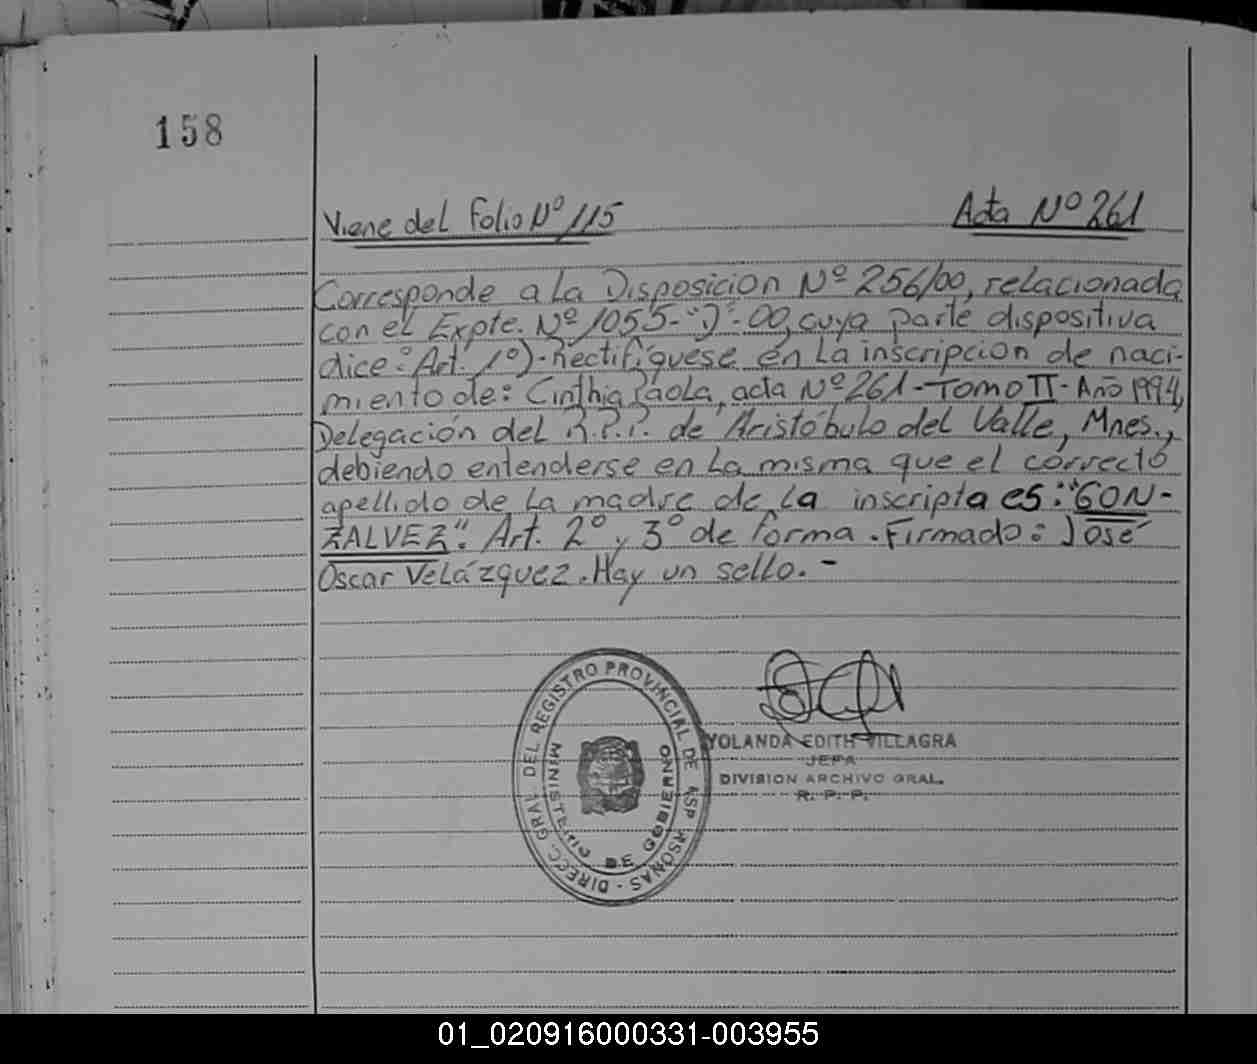 158
Viene del Folio Nº 115
Acta Nº 261
Corresponde a la Disposicion Nº 256/00, relacionada
con el Expte. Nº 1055-"J"-00, cuya parte dispositiva
dice: Art. 1º)- Rectifíquese en la inscripcion de naci-
miento de: Cinthia Paola, acta Nº 261-Tomo II- Año 1994,
Delegación del R.P.P. de Aristóbulo del Valle, Mnes.,
debiendo entenderse en la misma que el correcto
apellido de la madre de la inscripta es: "GON-
ZALVEZ". Art. 2º y 3º de forma. Firmado: José
Oscar Velázquez. Hay un sello.-
DIRECC. GRAL. DEL REGISTRO PROVINCIAL DE LAS PERSONAS -
MINISTERIO DE GOBIERNO
YOLANDA EDITH VILLAGRA
JEFA
DIVISION ARCHIVO GRAL.
R. P. P.
01_020916000331-003955